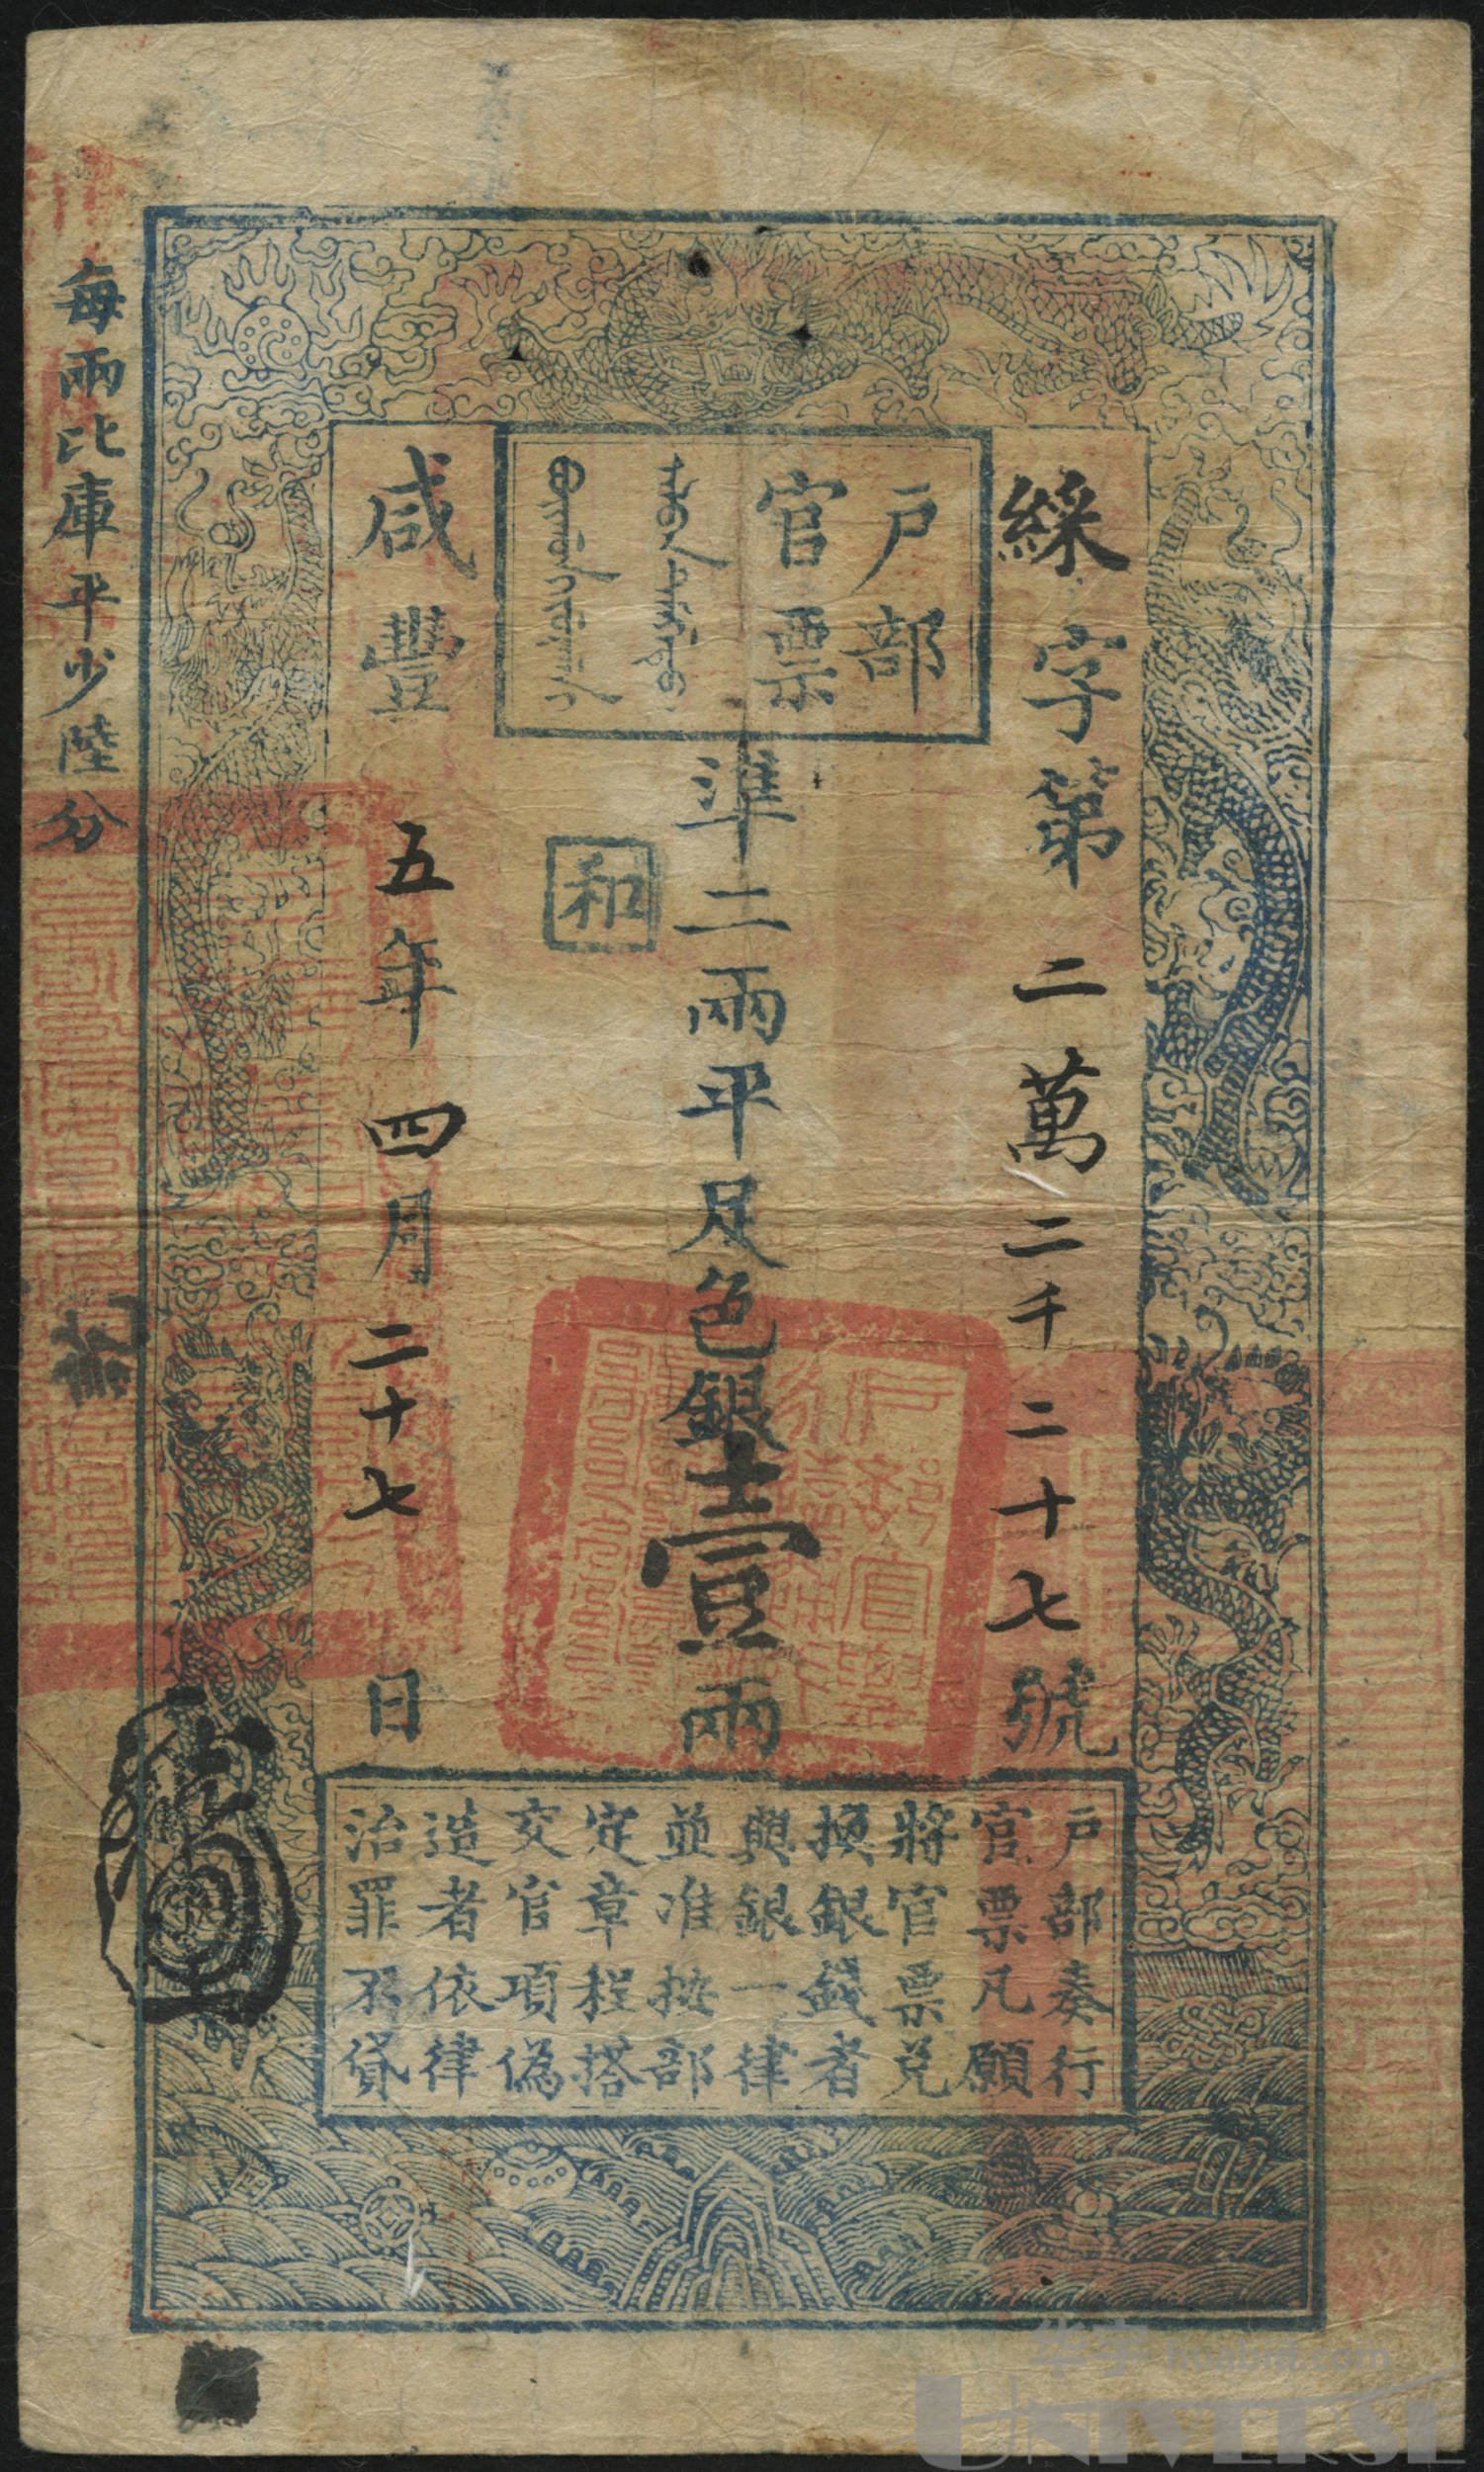 戶部
官票
綵字第二萬二千二十七號
準二兩平足色銀壹兩
和
咸豐五年四月二十七日
每兩比庫平少陸分
戶部奏行
官票凡願
將官票兌
換銀錢者
與銀一律
並准按部
定章程搭
交官項偽
造者依律
治罪不貸
华宇 huabid.com
UNIVERSE